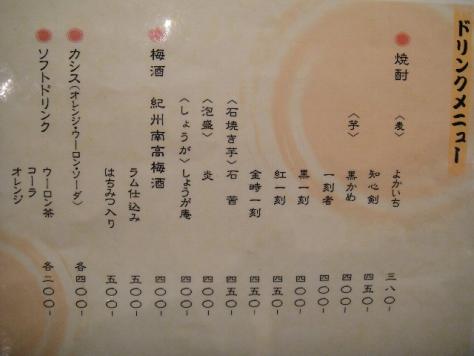 ドリンクメニュー
焼酎
〈麦〉 よかいち 三八〇-
知心剣 四五〇-
〈芋〉 黒かめ 四〇〇-
一刻者 四〇〇-
黒一刻 四〇〇-
紅一刻 四五〇-
金時一刻 四五〇-
〈石焼き芋〉 石苔 四五〇-
〈泡盛〉 炎 四〇〇-
〈しょうが〉 しょうが庵 四〇〇-
梅酒 紀州南高梅酒 四〇〇-
ラム仕込み 五〇〇-
はちみつ入り 五〇〇-
カシス(オレンジ・ウーロン・ソーダ) 各四〇〇-
ソフトドリンク ウーロン茶 各二〇〇-
コーラ
オレンジ